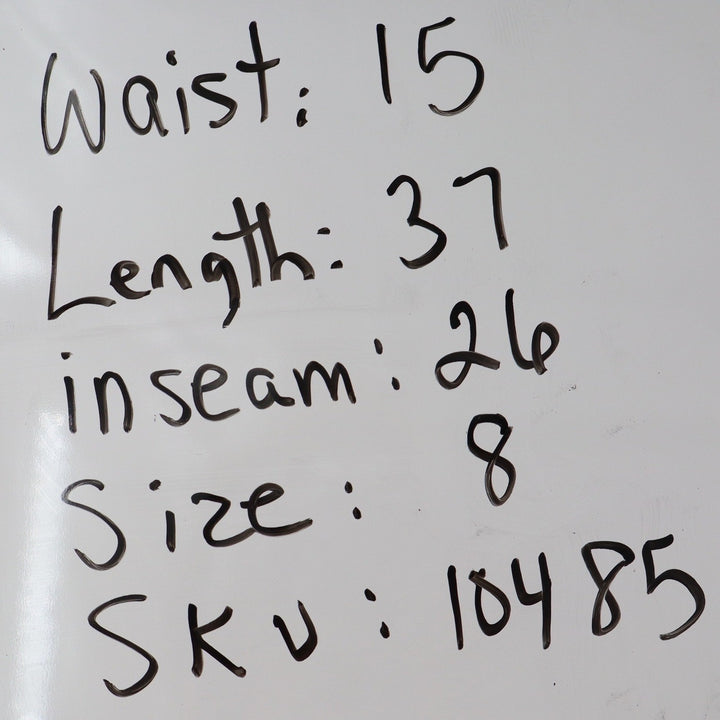 Waist: 15
Length: 37
inseam: 26
Size: 8
SKU: 10485